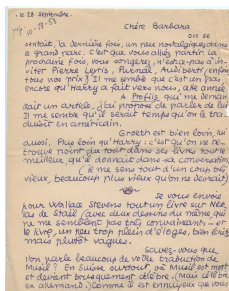 le 28 septembre.
Chère Barbara
On se
sentait, la dernière fois, un peu nostalgique dans
ce grand parc. C'est que vous alliez partir. La
prochaine fois, vous songerez, n'est-ce pas à in-
viter Pierre Leyris, Purnal, Audiberti, enfin
tous nos prix? Il me semble que c'est un pas
encore qu'Harry a fait vers nous, cette année.
A Profils, qui me deman
dait un article, j'ai proposé de parler de lui
Il me semble qu'il serait temps qu'on le tra
duisît en américain.
Groeth est bien loin, lui
aussi. Plus loin qu'Harry: c'est qu'on ne re-
trouve point du tout dans ses livres tout le
meilleur, qu'il donnait dans sa conversation
(je me sens tout d'un coup très
vieux, beaucoup plus vieux qu'on ne devrait)
Je vous envoie
pour Wallace Stevens tout un livre sur Nico
las de Staël (avec deux dessins du même qui
ne me semblent pas très convaincants — et
le livre, un peu trop plein d'éloges, bien écrit
mais plutôt vague).
Savez-vous que
l'on parle beaucoup de votre traduction de
Musil? En Suisse surtout, où Musil est mort
et devient brusquement célèbre. (Mais célèbre
en allemand.) Comme il est ennuyeux que vous